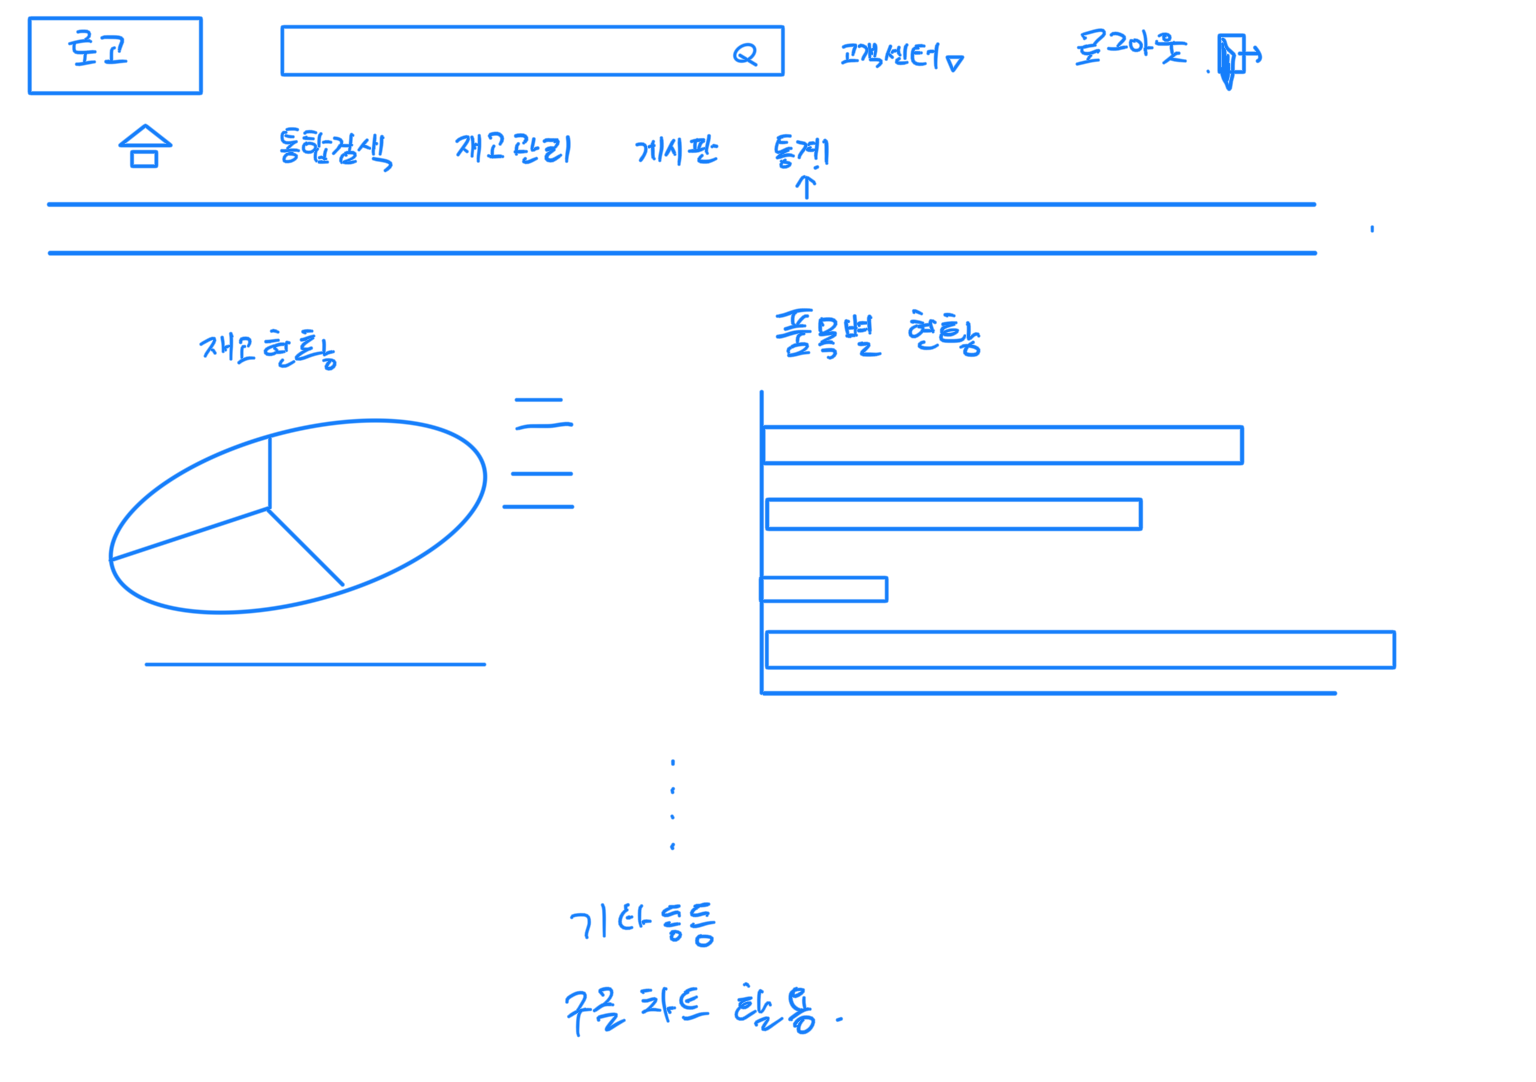 로고
고객센터
로그아웃
통합검색 재고관리 게시판 통계
재고현황
품목별 현황
기타등등
구글 차트 활용.